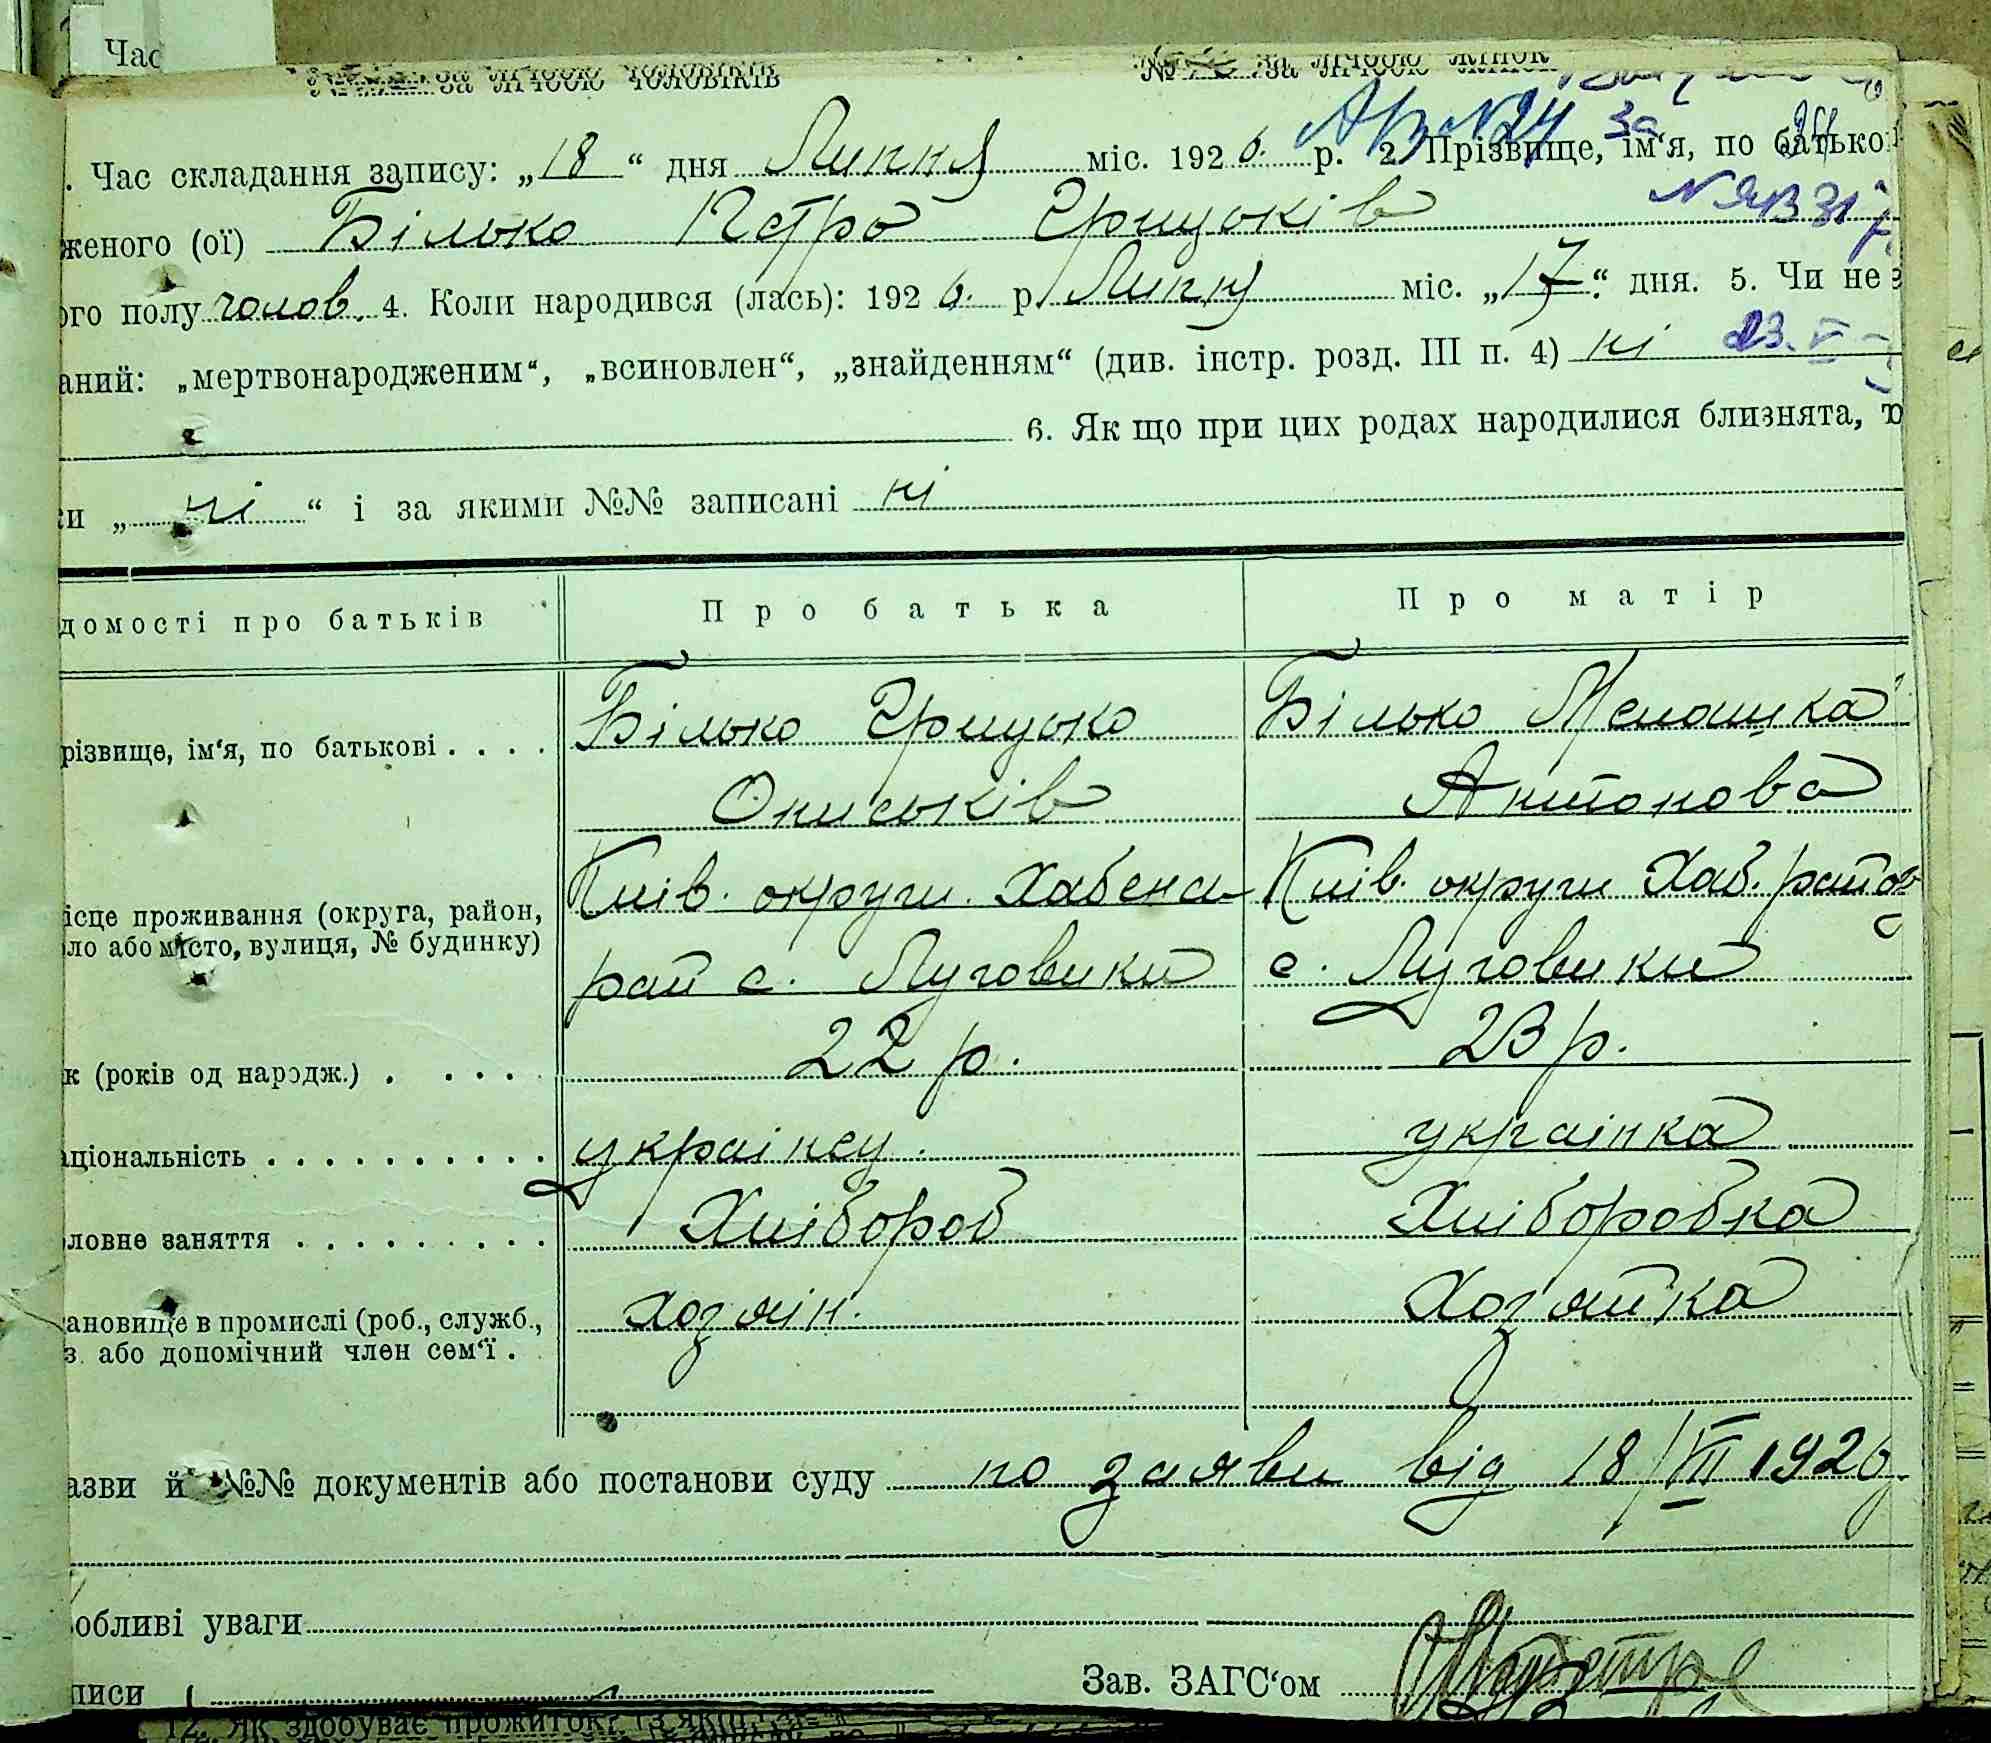 Час
за лічбою чоловіків № за лічбою жінок
АВ №24 за
. Час складання запису: „18“ дня Липня міс. 1926. р. 2. Прізвище, ім'я, по батькові
женого (ої) Білько Петро Грицьків
ого полу чолов. 4. Коли народився (лась): 1926. р. Липня міс. „17“ дня. 5. Чи не з
аний: „мертвонародженим“, „всиновлен“, „знайденням“ (див. інстр. розд. III п. 4) ні
6. Як що при цих родах народилися близнята, то
ки „ ні “ і за якими №№ записані ні
домості про батьків Про батька Про матір
різвище, ім'я, по батькові .... Білько Грицько Білько Мелашка
Ониськів Антонова
Київ. округи. Хабенс Київ. округи Хаб. району
ісце проживання (округа, район,
ло або місто, вулиця, № будинку)
рай с. Луговики с. Луговики
к (років од народж.) . ... 22 р. 23 р.
аціональність .......... українец. українка
ловне заняття ......... Хлібороб Хліборобка
ановище в промислі (роб., служб., хозяін. Хозяйка
з. або допомічний член сем'ї .
азви й №№ документів або постанови суду по заяви від 18/VII 1926
обливі уваги
писи Зав. ЗАГС'ом
12. Як здобуває прожиток